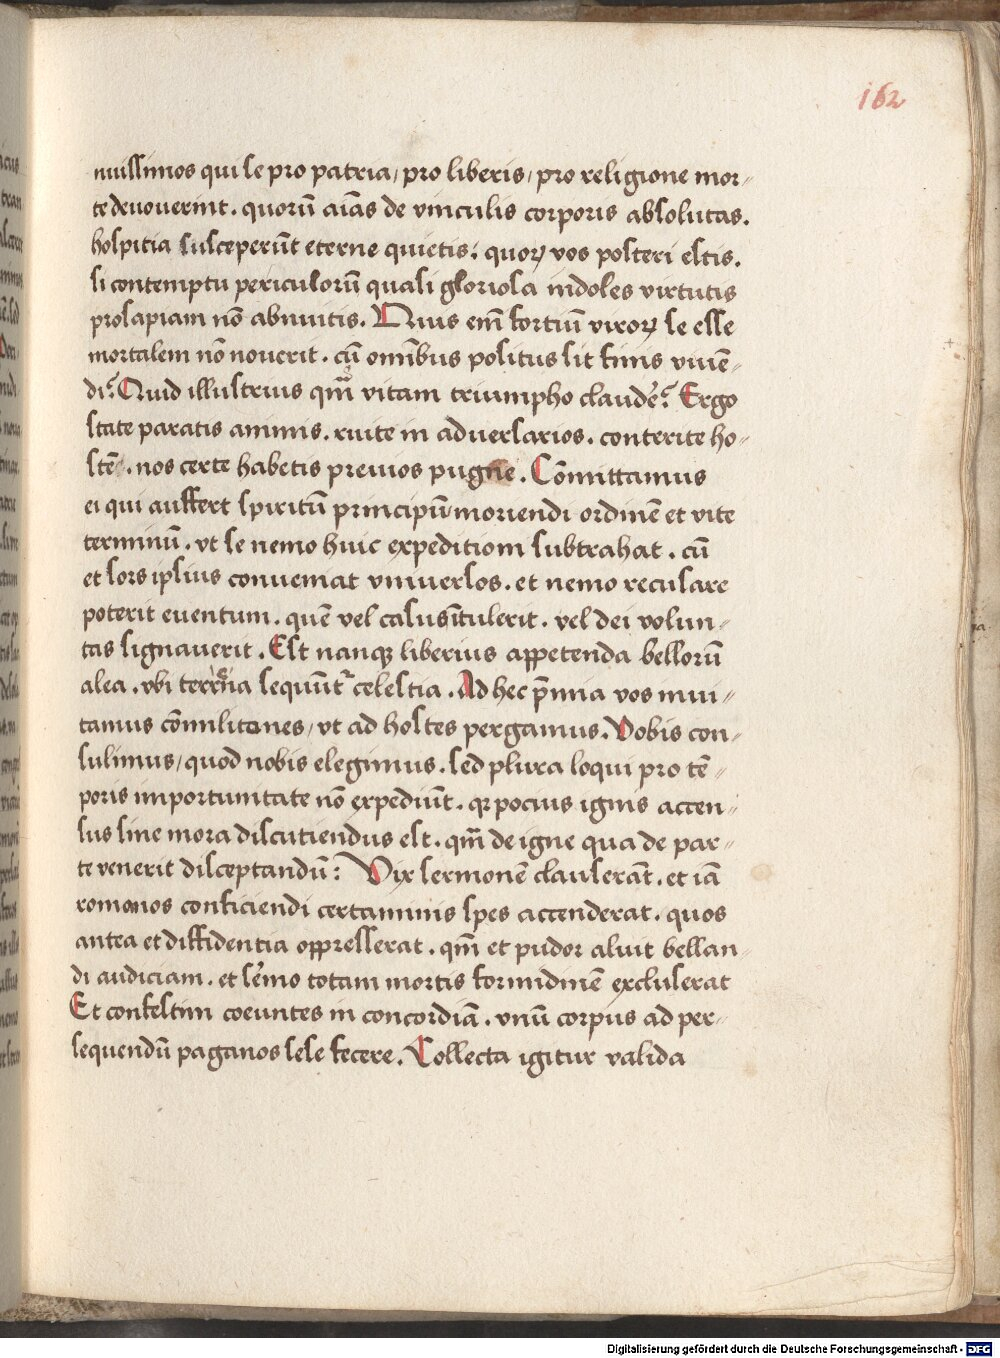 162
nuissimos qui se pro patria / pro liberis / pro religione mor-
te deuouerint . quorū aīas de vinculis corporis absolutas .
hospitia susceperūt eterne quietis : quoꝝ vos posteri estis .
si contemptu periculorū quasi gloriosa indoles virtutis
prosapiam nō abnuitis . Quis em̄ fortiū viroꝝ se esse
mortalem nō nouerit . cū om̄ibus positus sit finis viuē-
di ? Quid illustrius qm̄ vitam triumpho claudēˀ ? Ergo
state paratis animis . ruite in aduersarios . conterite ho-
stē . nos certe habetis preuios pugne . Cōmittamus
ei qui auffert spiritū principiū moriendi ordinē et vite
terminū . vt se nemo huic expeditioni subtrahat . cū
et sors ipsius conueniat vniuersos . et nemo recusare
poterit euentum . quē vel casus ītulerit . vel dei volun-
tas signauerit . Est nanqꝫ liberius appetenda bellorū
alea . vbi terrena sequūtˀ celestia . Ad hec p̄mia vos inui-
tamus cōmilitones / vt ad hostes pergamus . Vobis con-
sulimus / quod nobis elegimus . sed plura loqui pro tē-
poris importunitate nō expediūt . qꝛ pocius ignis accen-
sus sine mora discutiendus est . qm̄ de igne qua de par-
te venerit disceptandū : Vix sermonē clauserāt . et iā
romanos conficiendi certaminis spes accenderat . quos
antea et diffidentia oppresserat . qm̄ et pudor aluit bellan-
di audiciam . et sermo totam mortis formidinē excluserat
Et confestim coeuntes in concordiā . vnū corpus ad per-
sequendū paganos sese fecere . Collecta igitur valida
Digitalisierung gefördert durch die Deutsche Forschungsgemeinschaft - DFG